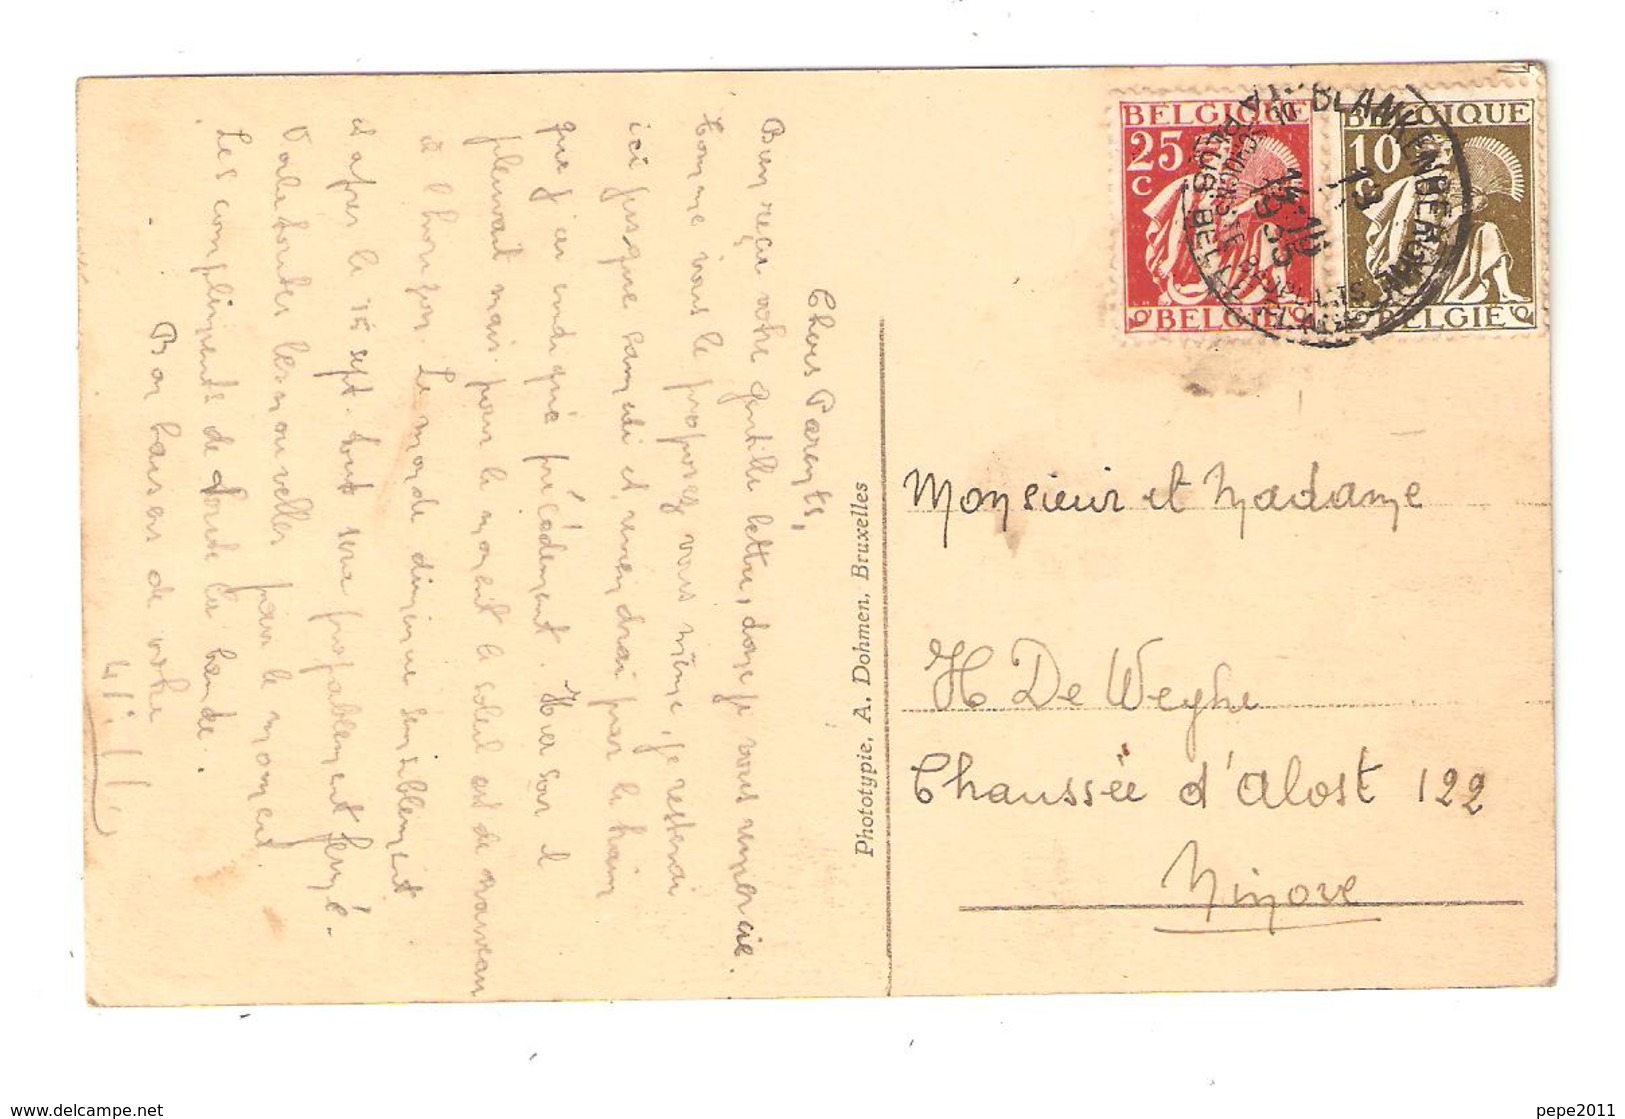 Chers Parents,
Bien reçu votre gentille lettre, dont je vous remercie.
Comme vous le proposez vous même, je resterai
ici jusque samedi et reviendrai par le train
que j'ai indiqué précédement. Hier soir il
pleuvait mais pour le moment le soleil est de nouveau
à l'horizon. Le monde diminue sensiblement
et après le 15 sept. tout sera probablement fermé.
Voila toutes les nouvelles pour le moment
Les compliments de toute la bande.
Bon baisers de votre
Phototypie, A. Dohmen, Bruxelles
BELGIQUE
25
C
BELGIE
BELGIQUE
10
C
BELGIE
BLANKENBERGE
13
1935
Monsieur et Madame
H De Weghe
Chaussée d'Alost 122
Ninove
www.delcampe.net
pepe2011